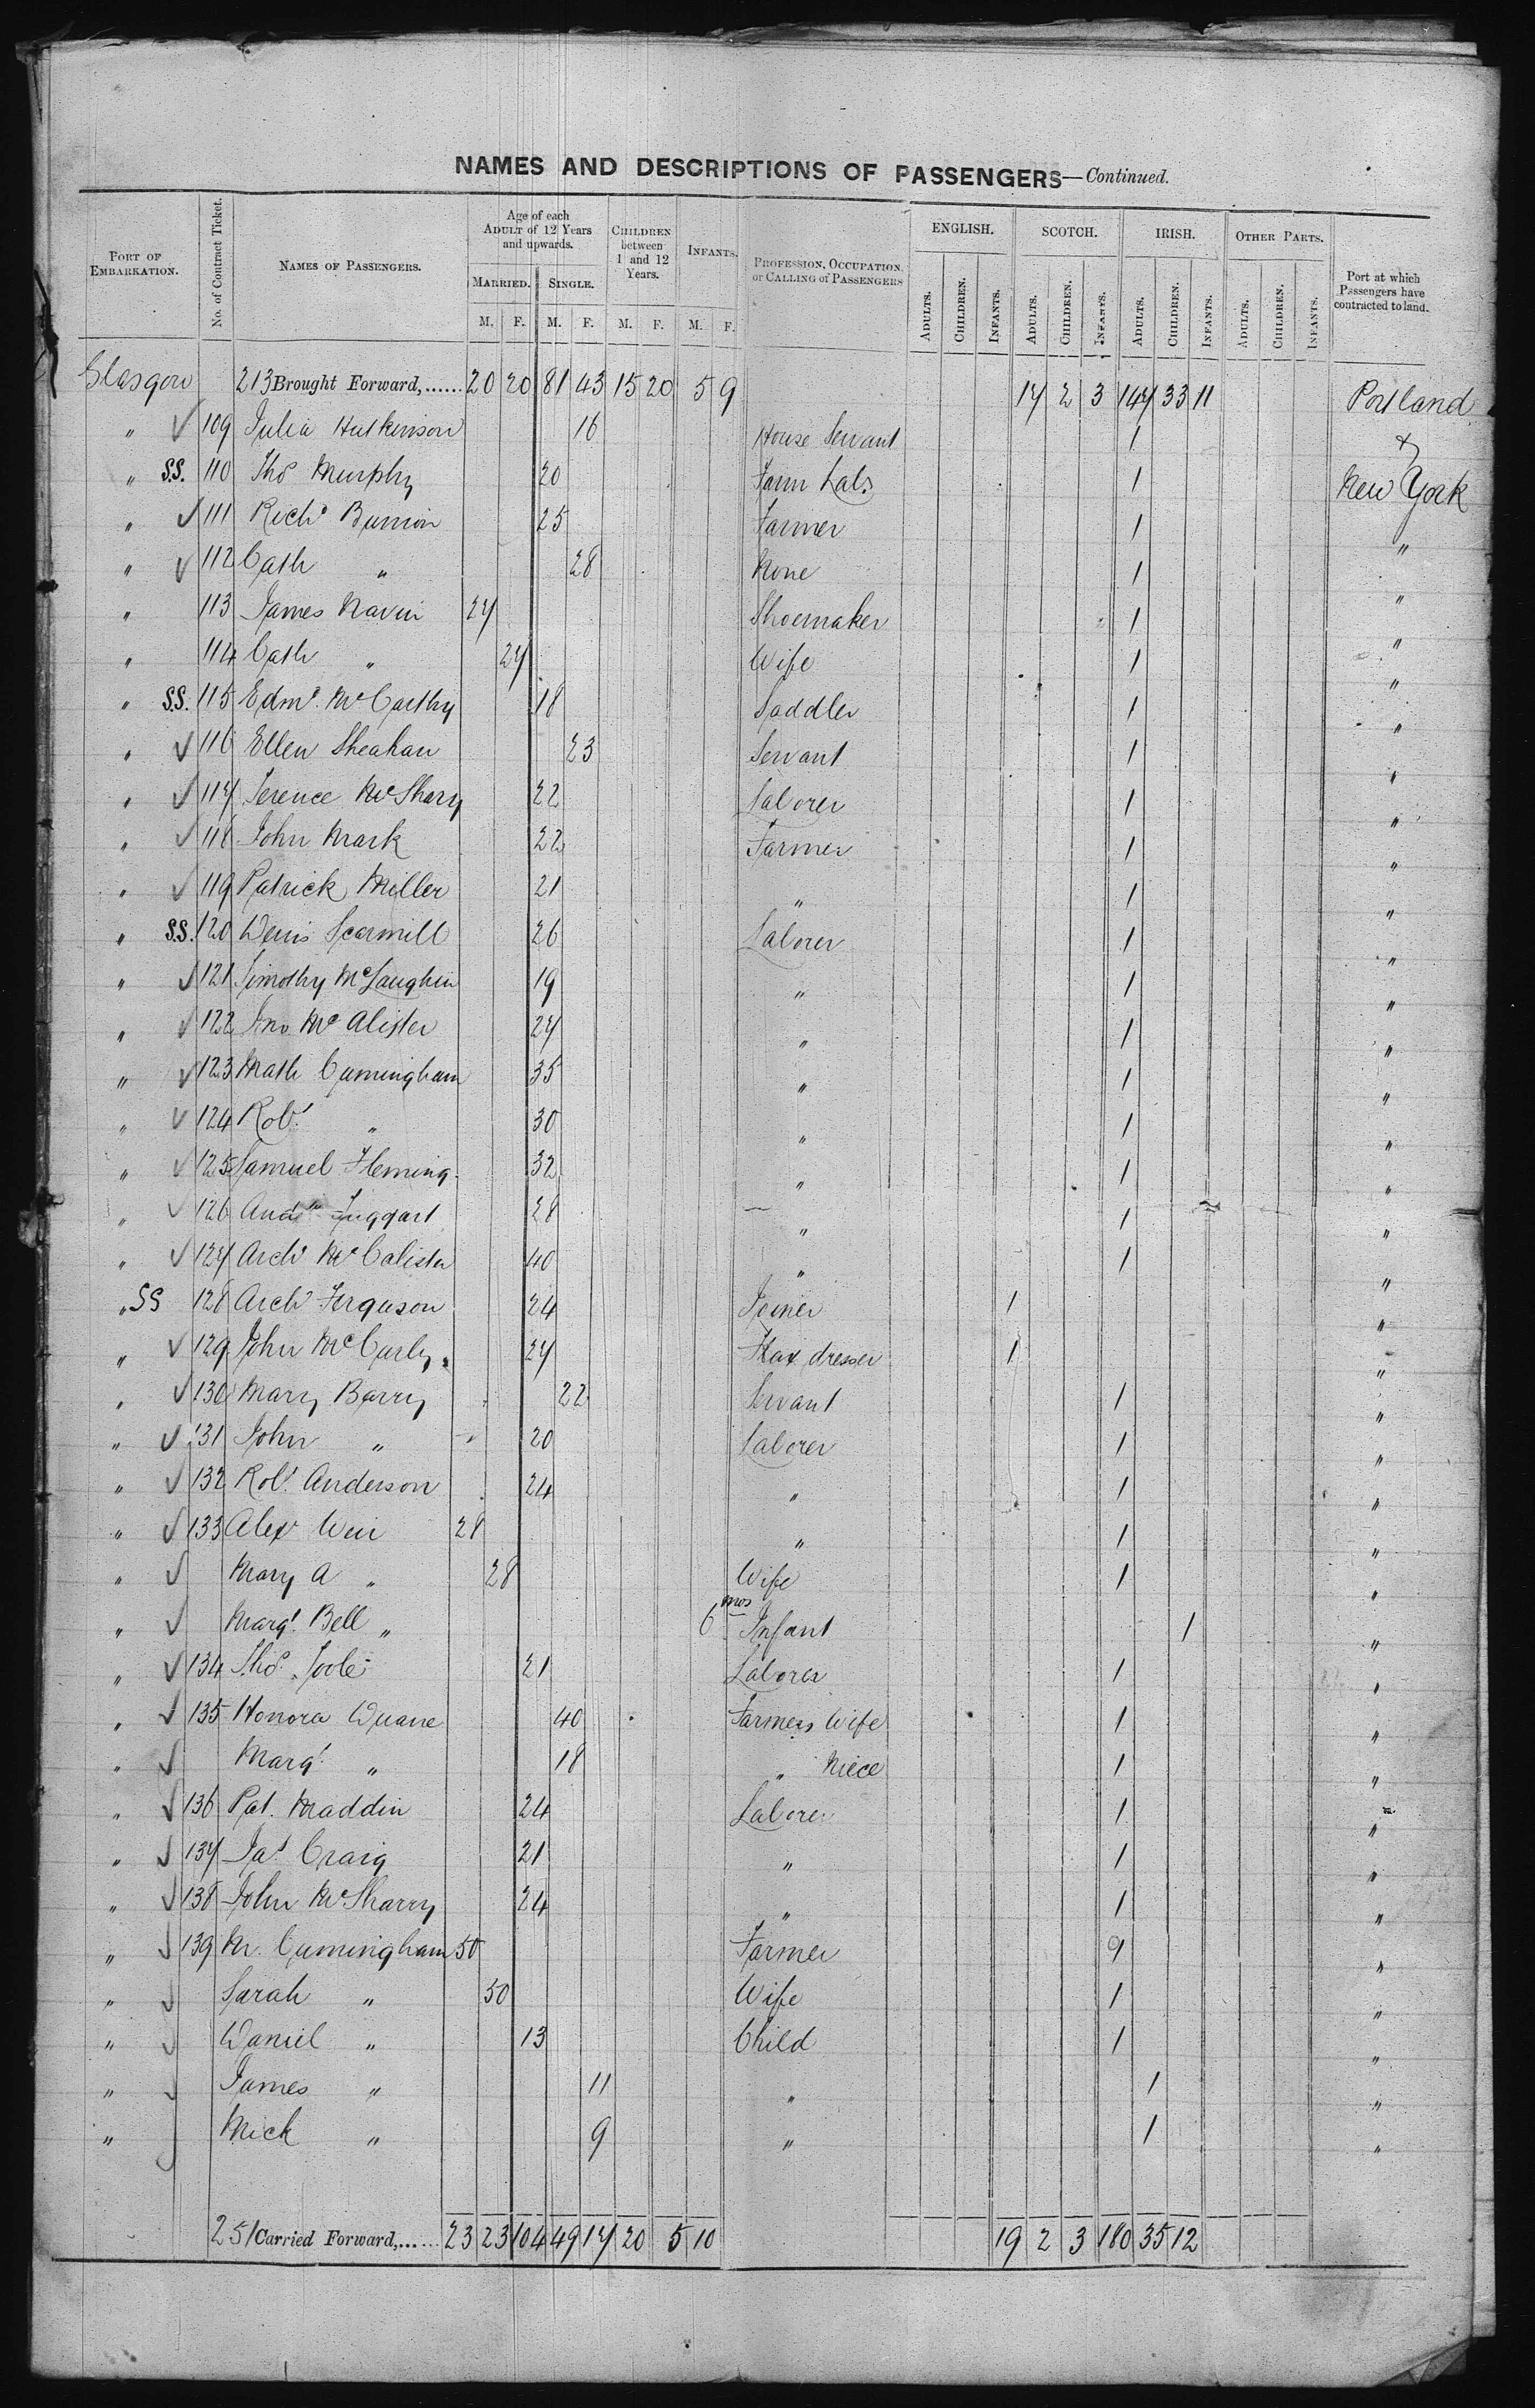 NAMES AND DESCRIPTIONS OF PASSENGERS—Continued.
PORT OF EMBARKATION. No. of Contract Ticket. NAMES OF PASSENGERS. Age of each ADULT of 12 Years and upwards. MARRIED. M. F. SINGLE. M. F. CHILDREN between 1 and 12 Years. M. F. INFANTS. M. F. PROFESSION, OCCUPATION, or CALLING of PASSENGERS ENGLISH. ADULTS. CHILDREN. INFANTS. SCOTCH. ADULTS. CHILDREN. INFANTS. IRISH. ADULTS. CHILDREN. INFANTS. OTHER PARTS. ADULTS. CHILDREN. INFANTS. Port at which Passengers have contracted to land.
Glasgow 213 Brought Forward,...... 20 20 81 43 15 20 5 9 17 2 3 147 33 11 Portland
" ✓ 109 Julia Hutkinson 16 House Servant 1 &
" S.S. 110 Thos Murphy 20 Farm Labr 1 New York
" ✓ 111 Richd 25 Farmer 1 "
" ✓ 112 Cath " 28 None 1 "
" 113 James Navin 27 Shoemaker 1 "
" 114 Cath " 27 Wife 1 "
" S.S. 115 Edmd. McCarthy 18 Saddler 1 "
" ✓ 116 Ellen Sheahan 23 Servant 1 "
" ✓ 117 Terence McSharry 22 Laborer 1 "
" ✓ 118 John Mark 22 Farmer 1 "
" ✓ 119 Patrick Miller 21 " 1 "
" S.S. 120 Denis Scarmill 26 Laborer 1 "
" ✓ 121 Timothy McLaughin 19 " 1 "
" ✓ 122 Jno McAlister 27 " 1 "
" ✓ 123 Math Cumingham 35 " 1 "
" ✓ 124 Robt. " 30 " 1 "
" ✓ 125 Samuel Fleming 32 " 1 "
" ✓ 126 Andw 28 " 1 "
" ✓ 127 Archd McCalister 40 " 1 "
" SS 128 Archd Ferguson 24 Joiner 1 "
" ✓ 129 John McCurly 27 Flax dresser 1 "
" ✓ 130 Mary Barry 22 Servant 1 "
" ✓ 131 John " 20 Laborer 1 "
" ✓ 132 Robt. Anderson 24 " 1 "
" ✓ 133 Alex Weir 28 " 1 "
" ✓ Mary A " 28 Wife 1 "
" ✓ Margt. Bell " 6 mos Infant 1 "
" ✓ 134 Thos. Toole 21 Laborer 1 "
" ✓ 135 Honora Duane 40 Farmers Wife 1 "
" ✓ Margt. " 18 " Niece 1 "
" ✓ 136 Pat. Maddin 24 Laborer 1 "
" ✓ 137 Jas. Craig 21 " 1 "
" ✓ 138 John McSharry 24 " 1 "
" ✓ 139 M. Cumingham 50 Farmer 1 "
" ✓ Sarah " 50 Wife 1 "
" ✓ Daniel " 13 Child 1 "
" ✓ James " 11 " 1 "
" ✓ Mick " 9 " 1 "
251 Carried Forward,...... 23 23 104 49 17 20 5 10 19 2 3 180 35 12